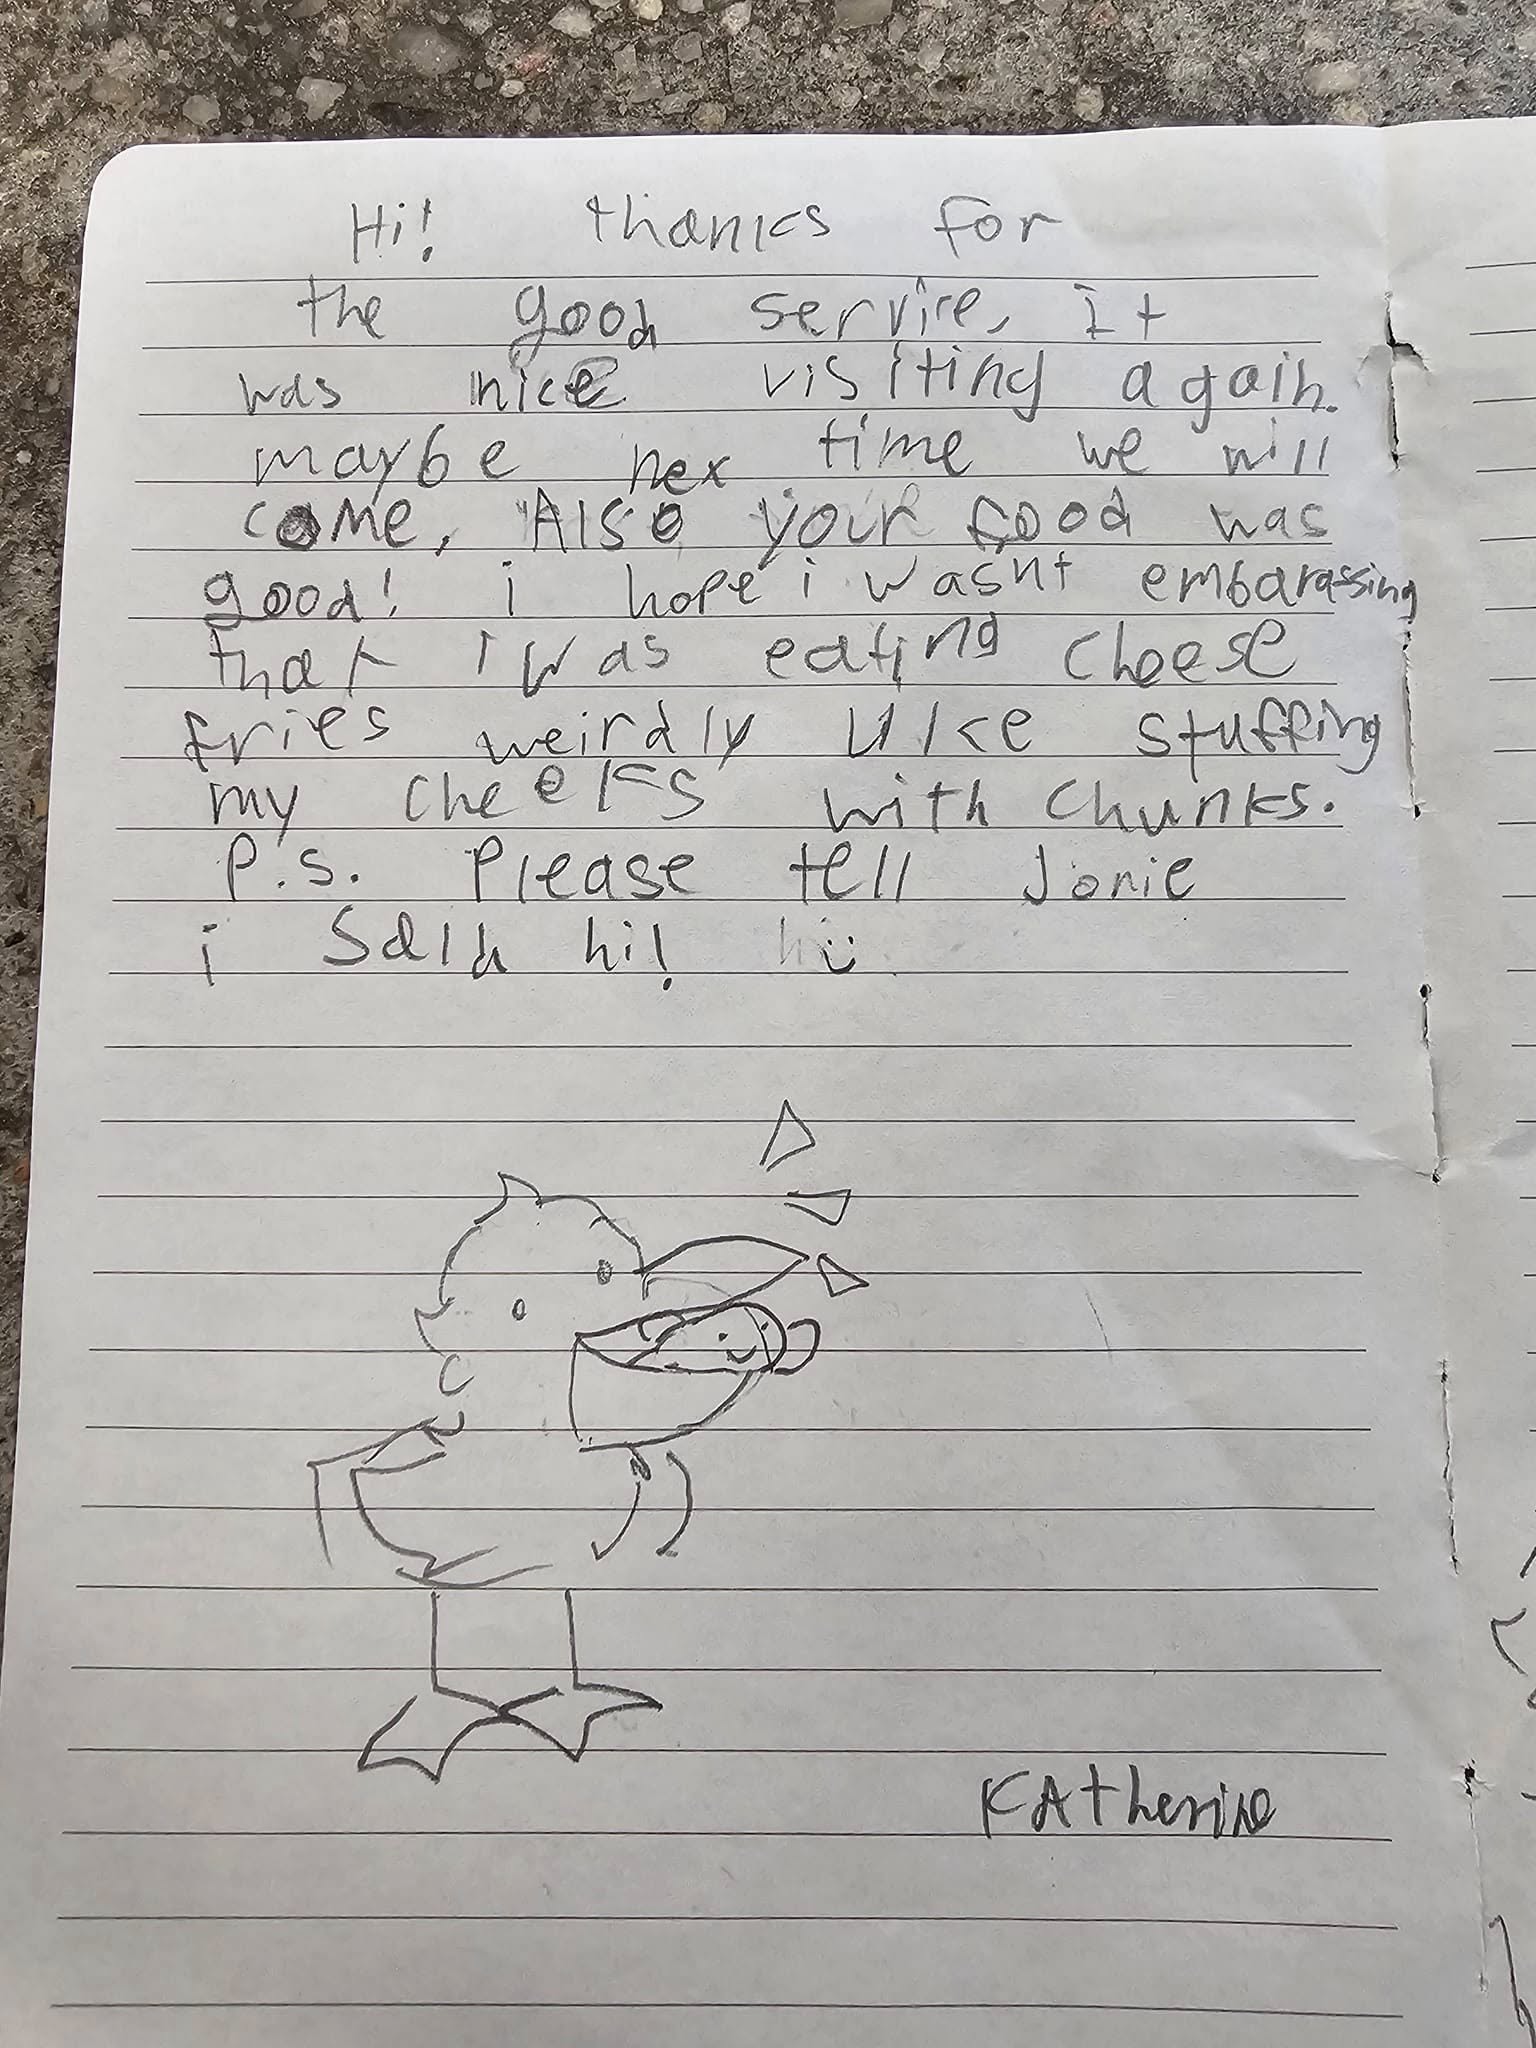 Hi! thanks for
the good servire, It
was nice visiting again.
maybe nex time we will
come, Also your food was
good! i hope i wasnt embarassing
that i was eating cheese
fries weirdly like stuffing
my cheeks with chunks.
P.s. Please tell Jonie
i Said hi! hi
KAtherine